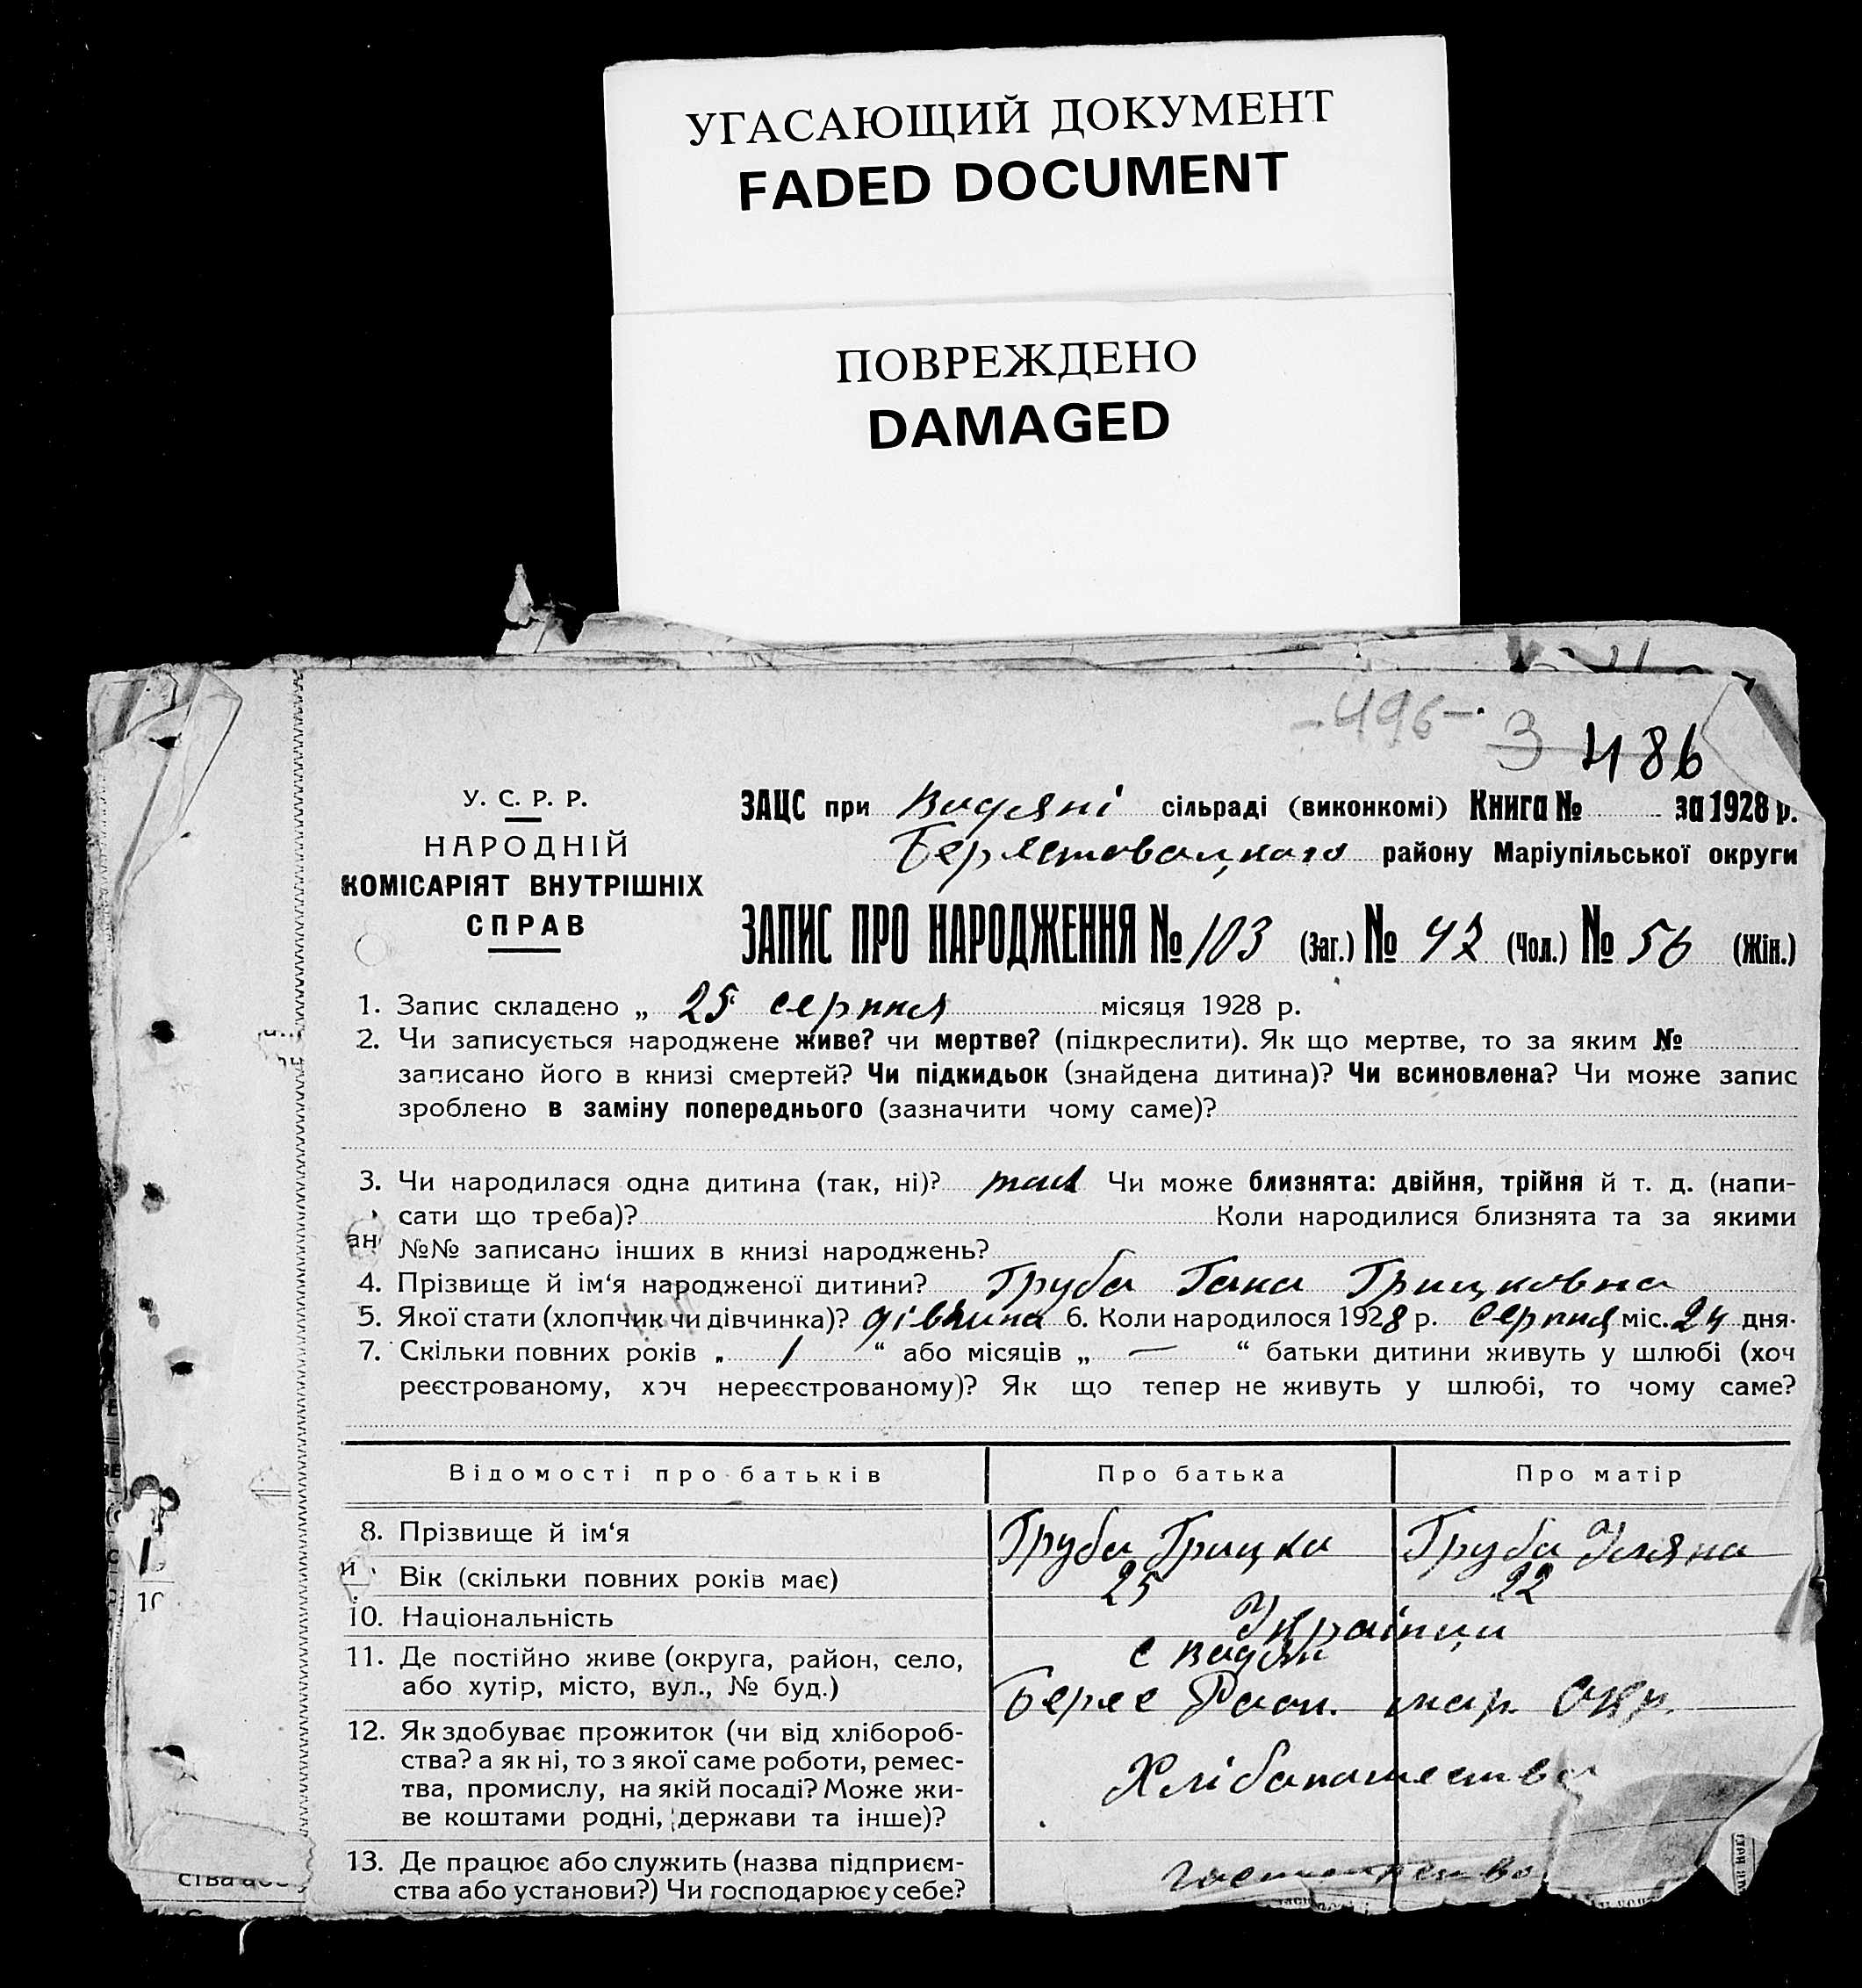 УГАСАЮЩИЙ ДОКУМЕНТ
FADED DOCUMENT
ПОВРЕЖДЕНО
DAMAGED
-496-
3 486
У. С. Р. Р.
НАРОДНІЙ
КОМІСАРІЯТ ВНУТРІШНІХ
СПРАВ
ЗАЦС при Водяні сільраді (виконкомі) Книга № за 1928 р.
Берястовацкого району Маріупільської округи
ЗАПИС ПРО НАРОДЖЕННЯ № 103 (Заг.) № 42 (Чол.) № 56 (Жін.)
1. Запис складено „ 25 серпня місяця 1928 р.
2. Чи записується народжене живе? чи мертве? (підкреслити). Як що мертве, то за яким №
записано його в книзі смертей? Чи підкидьок (знайдена дитина)? Чи всиновлена? Чи може запис
зроблено в заміну попереднього (зазначити чому саме)?
3. Чи народилася одна дитина (так, ні)? так Чи може близнята: двійня, трійня й т. д. (напи-
сати що треба)? Коли народилися близнята та за якими
№№ записано інших в книзі народжень?
4. Прізвище й ім‘я народженої дитини? Груба Гана Грицковна
5. Якої стати (хлопчик чи дівчинка)? дівчина 6. Коли народилося 1928 р. серпня міс. 24 дня.
7. Скільки повних років „ 1 “ або місяців „ — “ батьки дитини живуть у шлюбі (хоч
реєстрованому, хоч нереєстрованому)? Як що тепер не живуть у шлюбі, то чому саме?
Відомості про батьків Про батька Про матір
8. Прізвище й ім‘я Груба Грицко Груба Уляна
Вік (скільки повних років має) 25 22
10. Національність Українци
11. Де постійно живе (округа, район, село, с Водян
або хутір, місто, вул., № буд.) Берес Раон. мар. Окр.
12. Як здобуває прожиток (чи від хлібороб-
ства? а як ні, то з якої саме роботи, ремес-
тва, промислу, на якій посаді? Може жи- Хлібопашество
ве коштами родні, держави та інше)?
13. Де працює або служить (назва підприєм-
ства або установи?) Чи господарює у себе?